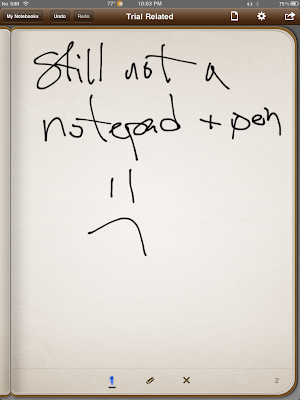 No SIM 77° 10:03 PM 75%
My Notebooks Undo Redo Trial Related
Still not a
notepad + pen
2